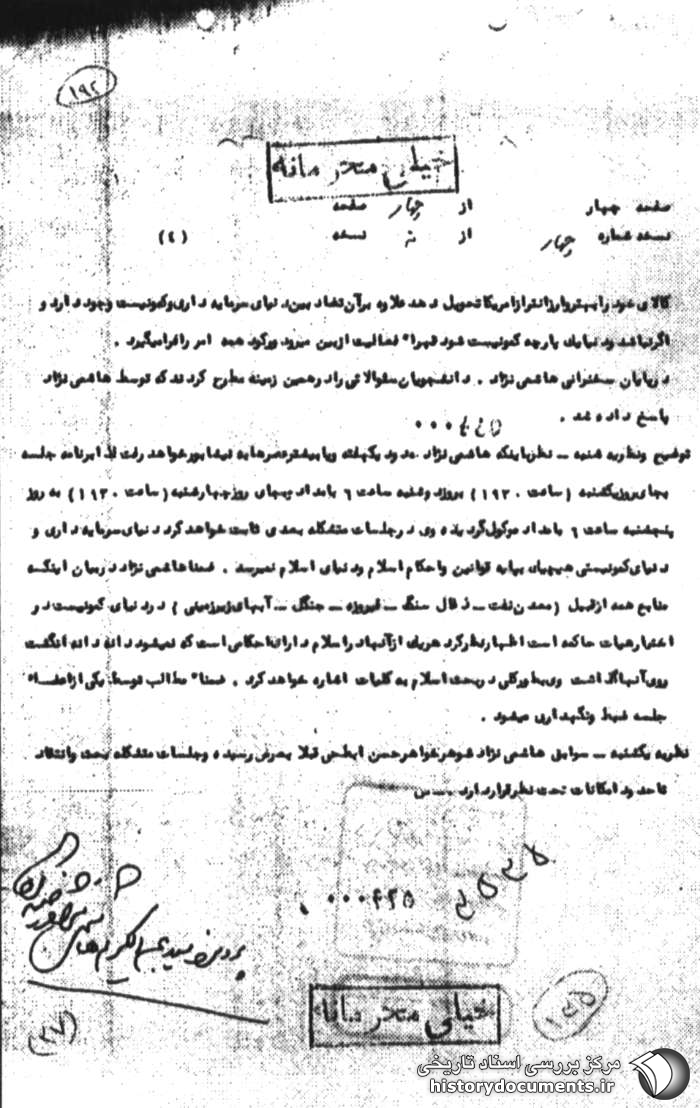 ۱۹۲
خیلی محرمانه
صفحه چهار از چهار صفحه
نسخه شماره چهار از نه نسخه (٤)
کالای خود را بهتر و ارزانتر از امریکا تحویل دهد علاوه بر آن تضاد بین دنیای سرمایه داری و کمونیست وجود دارد و
اگر نباشد و دنیا یک پارچه کمونیست شود قهراً فعالیت از بین میرود و رکود همه امر را فرامیگیرد .
در پایان سخنرانی هاشمی نژاد . دانشجویان سئوالاتی را در همین زمینه مطرح کردند که توسط هاشمی نژاد
پاسخ داده شد .
توضیح و نظریه شنبه ــ نظر باینکه هاشمی نژاد حدود یکهفته ویا بیشتر عصرها به نیشابور خواهد رفت لذا برنامه جلسه
بجای روز یکشنبه (ساعت ۱۹۳۰) بروز دوشنبه ساعت ٦ بامداد بجای روز چهارشنبه (ساعت ۱۹۳۰) به روز
پنجشنبه ساعت ٦ بامداد موکول گردیده وی در جلسات متشکله بعدی ثابت خواهد کرد دنیای سرمایه داری و
دنیای کمونیستی هیچیک بپایه قوانین و احکام اسلام و دنیای اسلام نمیرسد . ضمناً هاشمی نژاد در بیان اینکه
منابع همه از قبیل (معدن نفت ــ ذغال سنگ ــ فیروزه ــ جنگل ــ آبهای زیرزمینی) در دنیای کمونیست در
اختیار هیات حاکمه است اظهار نظر کرد هریک از آنها در اسلام دارای احکامی است که نمیشود دانه دانه انگشت
روی آنها گذاشت وی بطور کلی در بحث اسلام به کلیات اشاره خواهد کرد . ضمناً مطالب توسط یکی از اعضاء
جلسه ضبط و نگهداری میشود .
نظریه یکشنبه ــ سوابق هاشمی نژاد شوهر خواهر حسن ابطحی قبلاً بعرض رسیده و جلسات متشکله بحث و انتقاد
تا حدود امکانات تحت نظر قرار دارد . ــ س
خیلی محرمانه
(۲۷)
مرکز بررسی اسناد تاریخی
historydocuments.ir